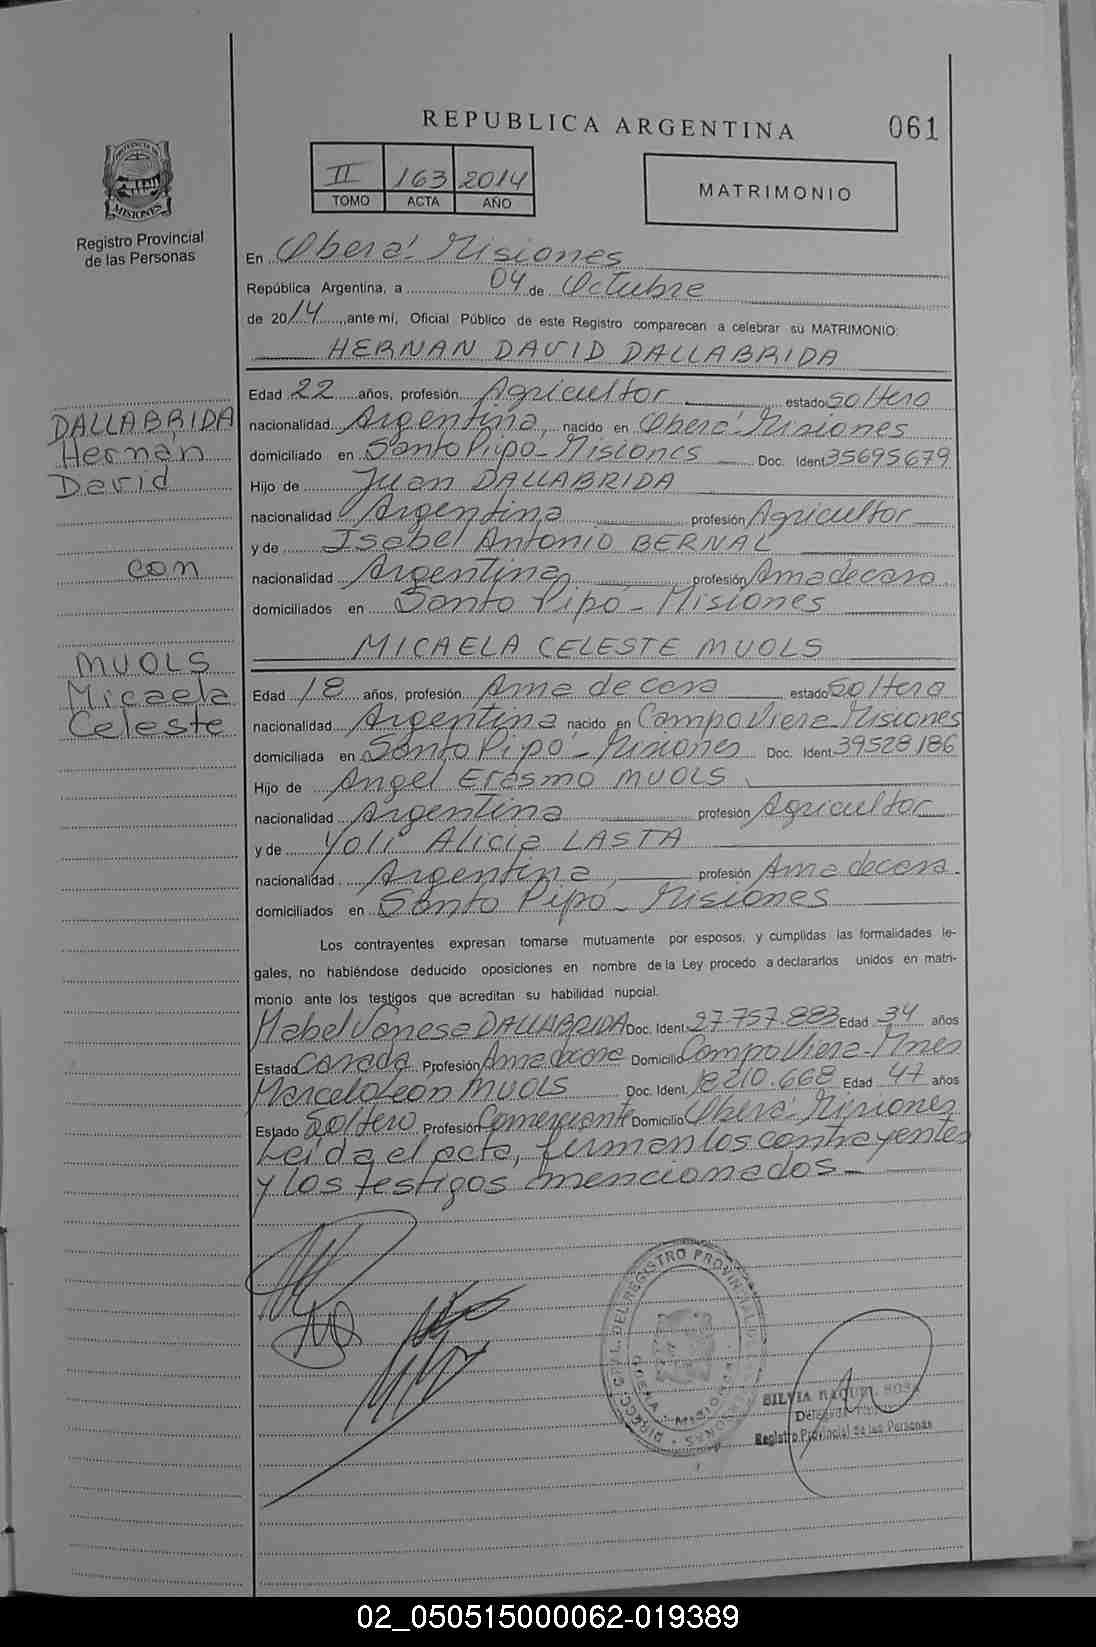 REPUBLICA ARGENTINA
061
PROVINCIA DE
MISIONES
Registro Provincial
de las Personas
II 163 2014
TOMO ACTA AÑO
MATRIMONIO
En Oberá - Misiones
República Argentina, a 04 de Octubre
de 2014, ante mí, Oficial Público de este Registro comparecen a celebrar su MATRIMONIO:
HERNAN DAVID DALLABRIDA
DALLABRIDA
Hernán
David
con
MUOLS
Micaela
Celeste
Edad 22 años, profesión Agricultor estado soltero
nacionalidad Argentina, nacido en Oberá - Misiones
domiciliado en Santo Pipó - Misiones Doc. Ident 35695679
Hijo de Juan DALLABRIDA
nacionalidad Argentina profesión Agricultor
y de Isabel Antonio BERNAL
nacionalidad Argentina profesión Ama de casa
domiciliados en Santo Pipó - Misiones
MICAELA CELESTE MUOLS
Edad 18 años, profesión Ama de casa estado soltera
nacionalidad Argentina nacido en Campo Viera - Misiones
domiciliada en Santo Pipó - Misiones Doc. Ident. 39528186
Hijo de Angel Erasmo MUOLS
nacionalidad Argentina profesión Agricultor
y de Yoli Alicia LASTA
nacionalidad Argentina profesión Ama de casa.
domiciliados en Santo Pipó - Misiones
Los contrayentes expresan tomarse mutuamente por esposos, y cumplidas las formalidades le-
gales, no habiéndose deducido oposiciones en nombre de la Ley procedo a declararlos unidos en matri-
monio ante los testigos que acreditan su habilidad nupcial.
Mabel Vanesa DALLABRIDA Doc. Ident. 27.757.883 Edad 34 años
Estado Casada Profesión Ama de casa Domicilio Campo Viera - Mnes
Marcelo León MUOLS Doc. Ident. 18210.668 Edad 47 años
Estado Soltero Profesión Comerciante Domicilio Oberá - Misiones
Leida el acta, firman los contrayentes
y los testigos mencionados -
SILVIA RAQUEL
Registro Provincial de las Personas
02_050515000062-019389